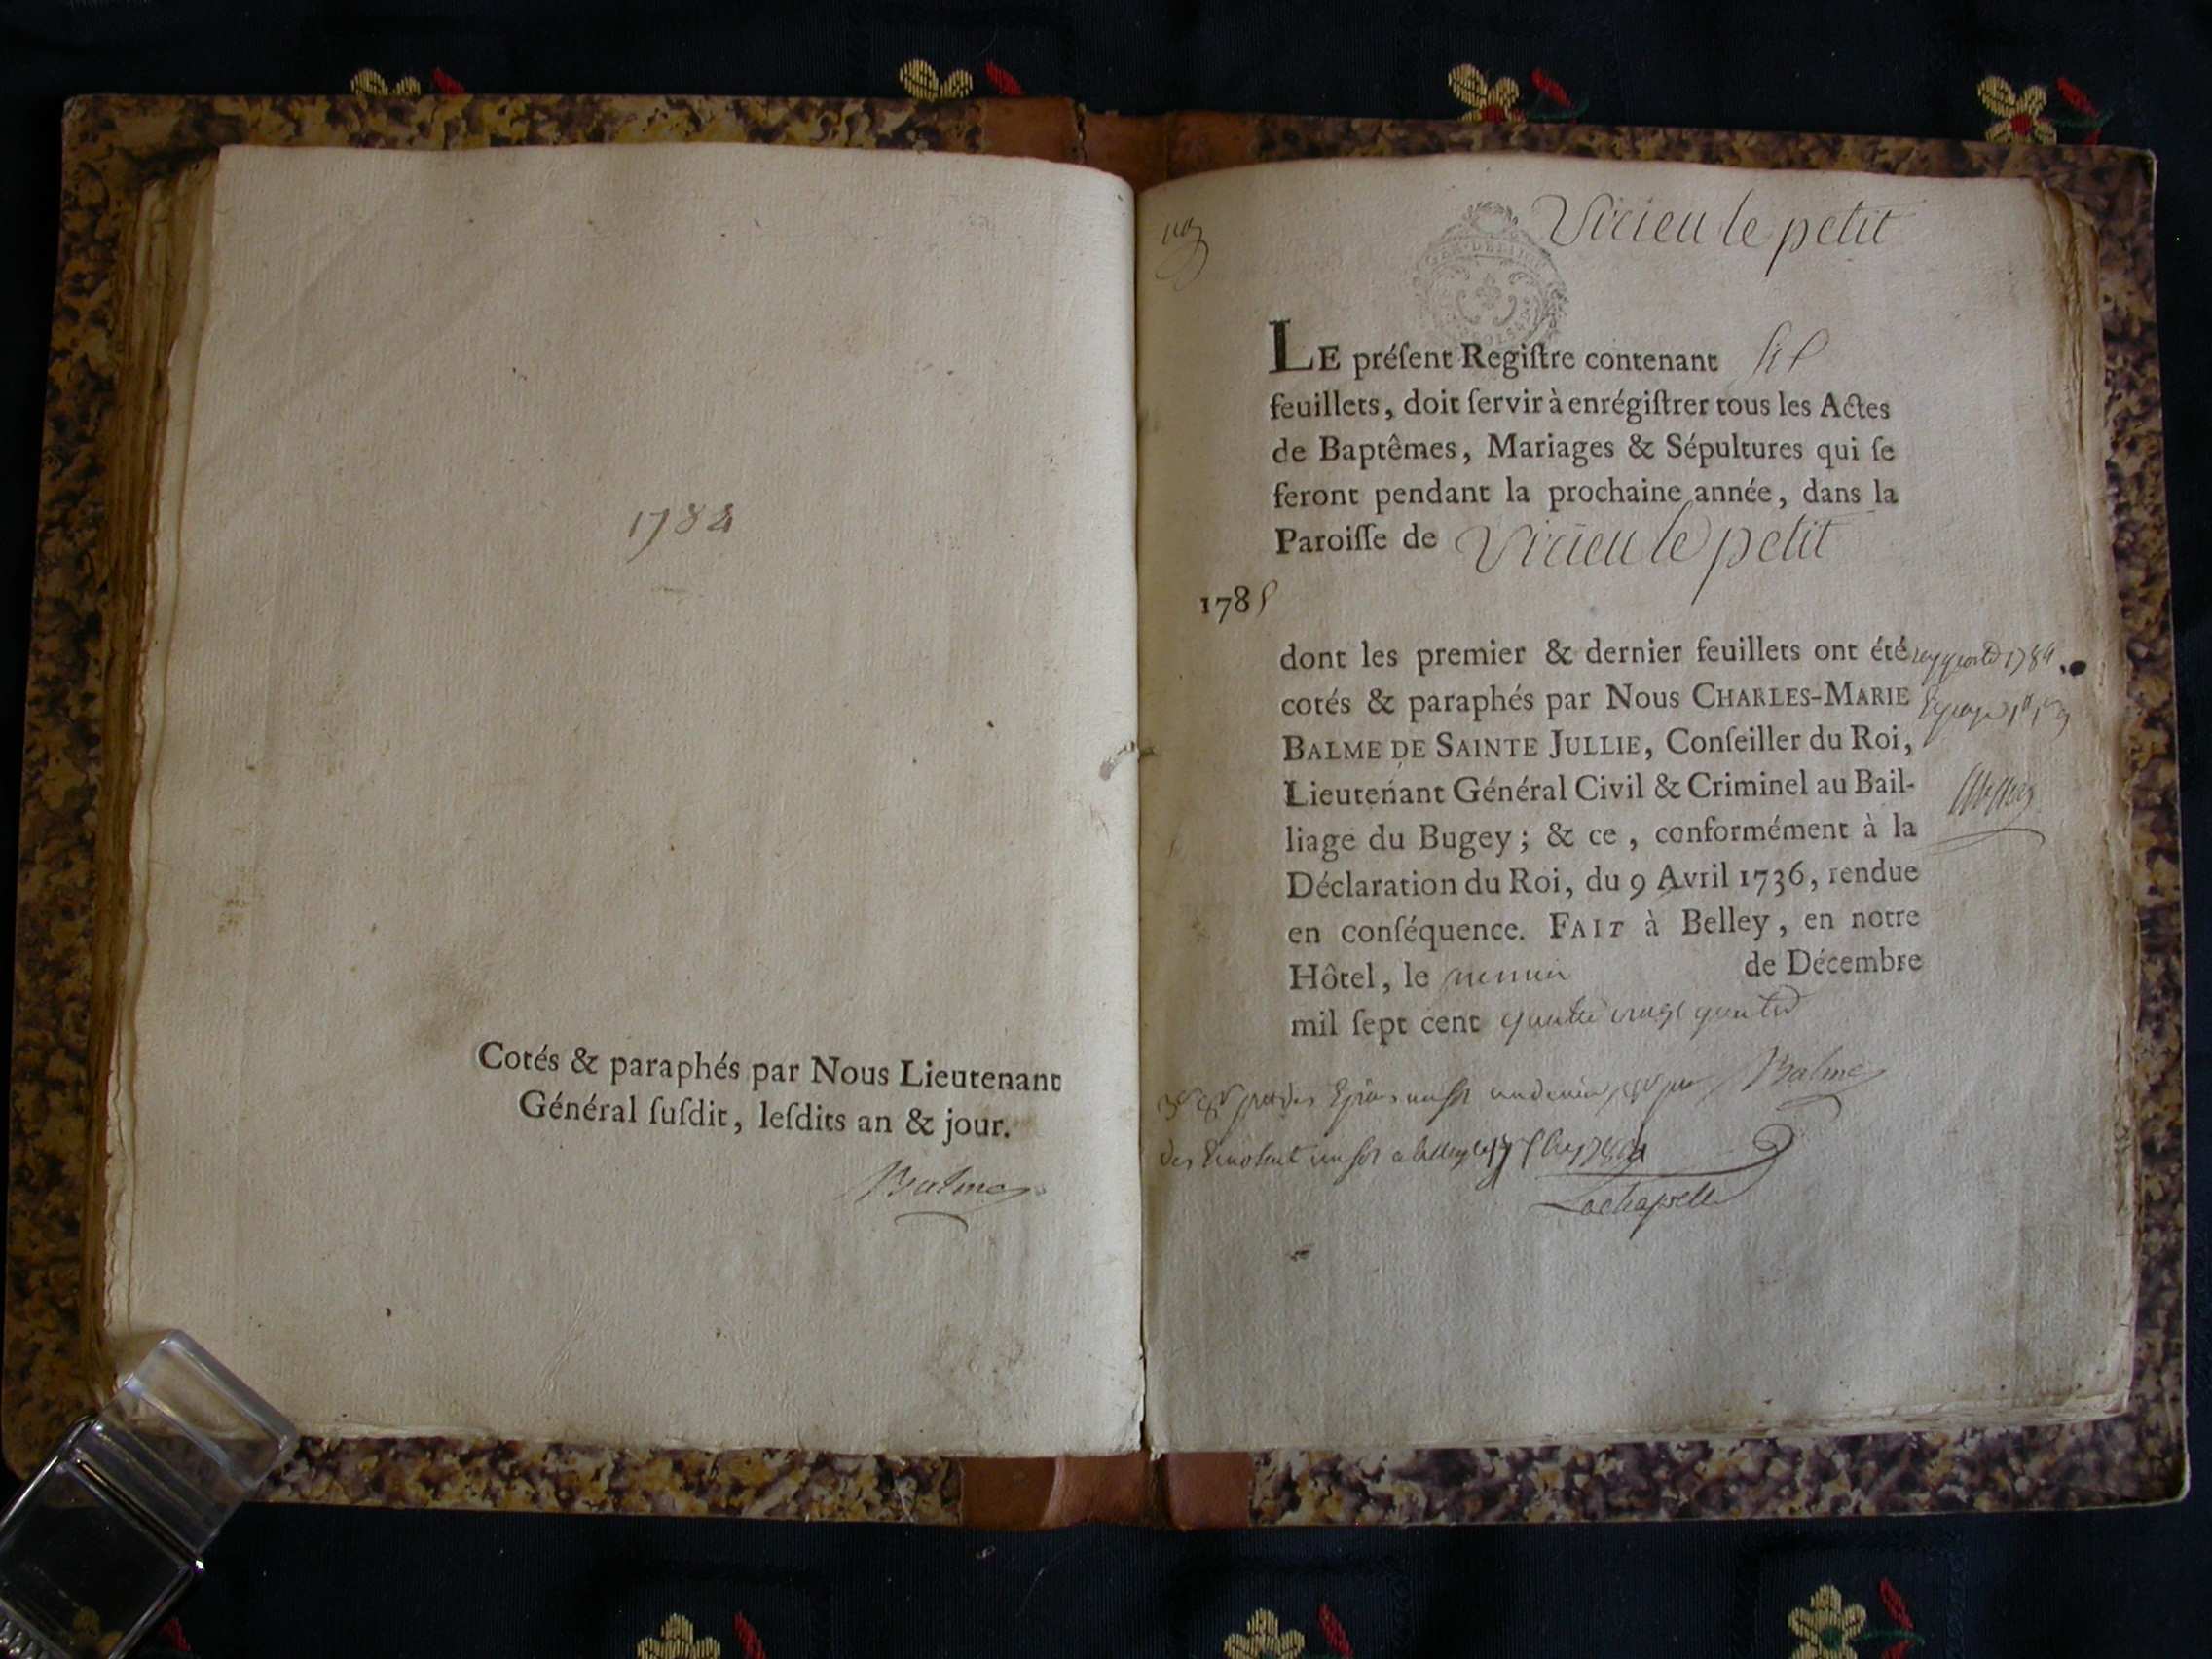 1784
Cotés & paraphés par Nous Lieutenant
Général ſuſdit, leſdits an & jour.
Balme
Virieu le petit
LE préſent Regiſtre contenant
feuillets, doit ſervir à enrégiſtrer tous les Actes
de Baptêmes, Mariages & Sépultures qui ſe
feront pendant la prochaine année, dans la
Paroiſſe de Virieu le petit
1785
dont les premier & dernier feuillets ont été
cotés & paraphés par Nous CHARLES-MARIE
BALME DE SAINTE JULLIE, Conſeiller du Roi,
Lieutenant Général Civil & Criminel au Bail-
liage du Bugey ; & ce , conformément à la
Déclaration du Roi, du 9 Avril 1736, rendue
en conſéquence. FAIT à Belley , en notre
Hôtel, le premier de Décembre
mil ſept cent quatre vingt quatre
Balme
Lachapelle